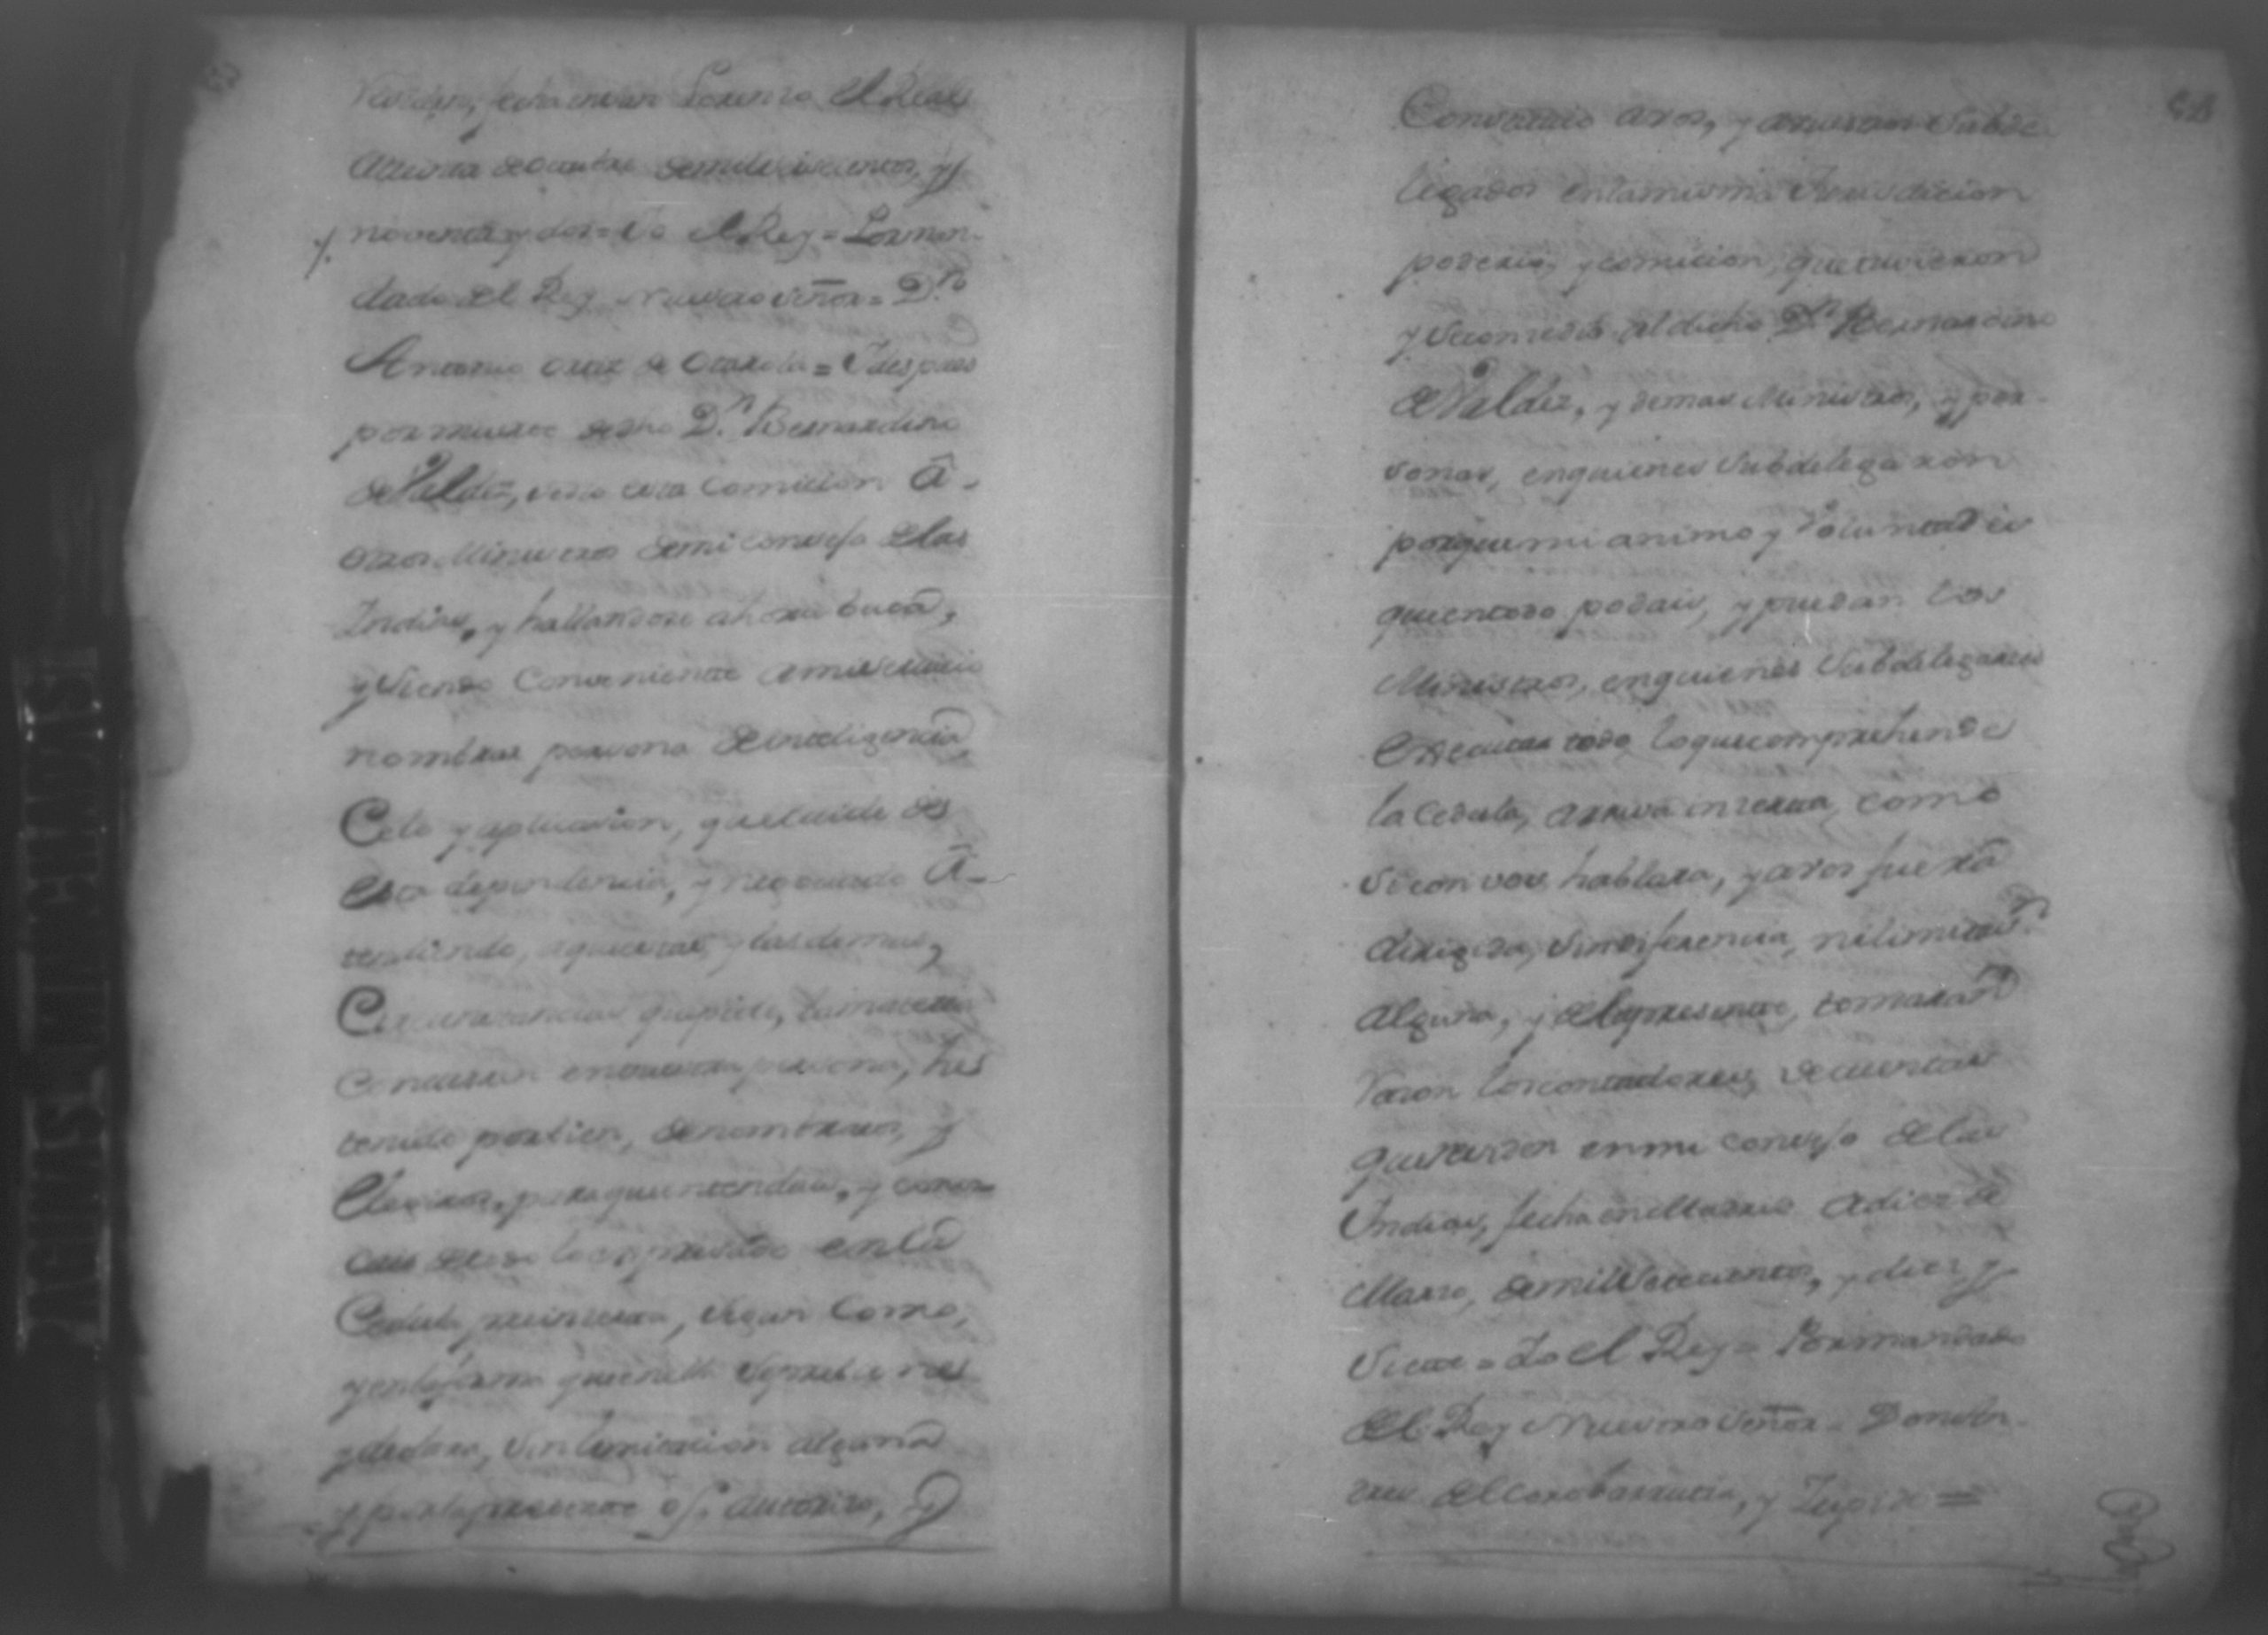 fecha en San Lorenzo el Real
a treinta de octubre de mil seiscientos, y
noventa y dos = Yo el Rey = Por man
dado del Rey Nuestro Señor = D.n
Antonio Ortiz de Otarola = Y despues
por muerte de dho D.n Bernardino
de Valdez, se dio esta Comission â
otros Ministros de mi Consejo de las
Indias, y hallandose ahora baca,
y siendo Conveniente a mi servicio
nombrar persona de inteligencia
Celo y aplicacion, que cuide de
esta dependencia, y negociado â
tendiendo, a que estas, y las demas,
Circunstancias que pide, la materia
Concurren en vuestra persona, he
tenido por bien, de nombraros, y
elegiros, para que entendais, y conoz
cais de todo lo expresado en la
Cedula preinserta, segun como,
y en la forma que en ella se previene
y declara, sin limitacion alguna
y por la presente os autorizo, y
Concedo a vos, y a vuestros Subde
legados en la misma Jurisdicion
poderio, y comicion, que tuvieron
y se concedio al dicho D.n Bernardino
de Valdez, y demas Ministros, y per
sonas, en quienes subdelegaron
porque mi animo y voluntad es
que en todo podais, y puedan los
Ministros, en quienes subdelegareis
executar todo lo que comprehende
la Cedula, arriva inserta, como
si con vos hablara, y a vos fuera
dirigida, sin diferencia, ni limitaz.n
alguna, y de la presente, tomaran
razon los contadores, de cuentas
que residen en mi consejo de las
Indias, fecha en Madrid a diez de
Marzo, de mil setecientos, y diez y
siete = Yo el Rey = Por mandado
del Rey Nuestro Señor = Don An
dres de Elcorobarrutia, y Zupide =